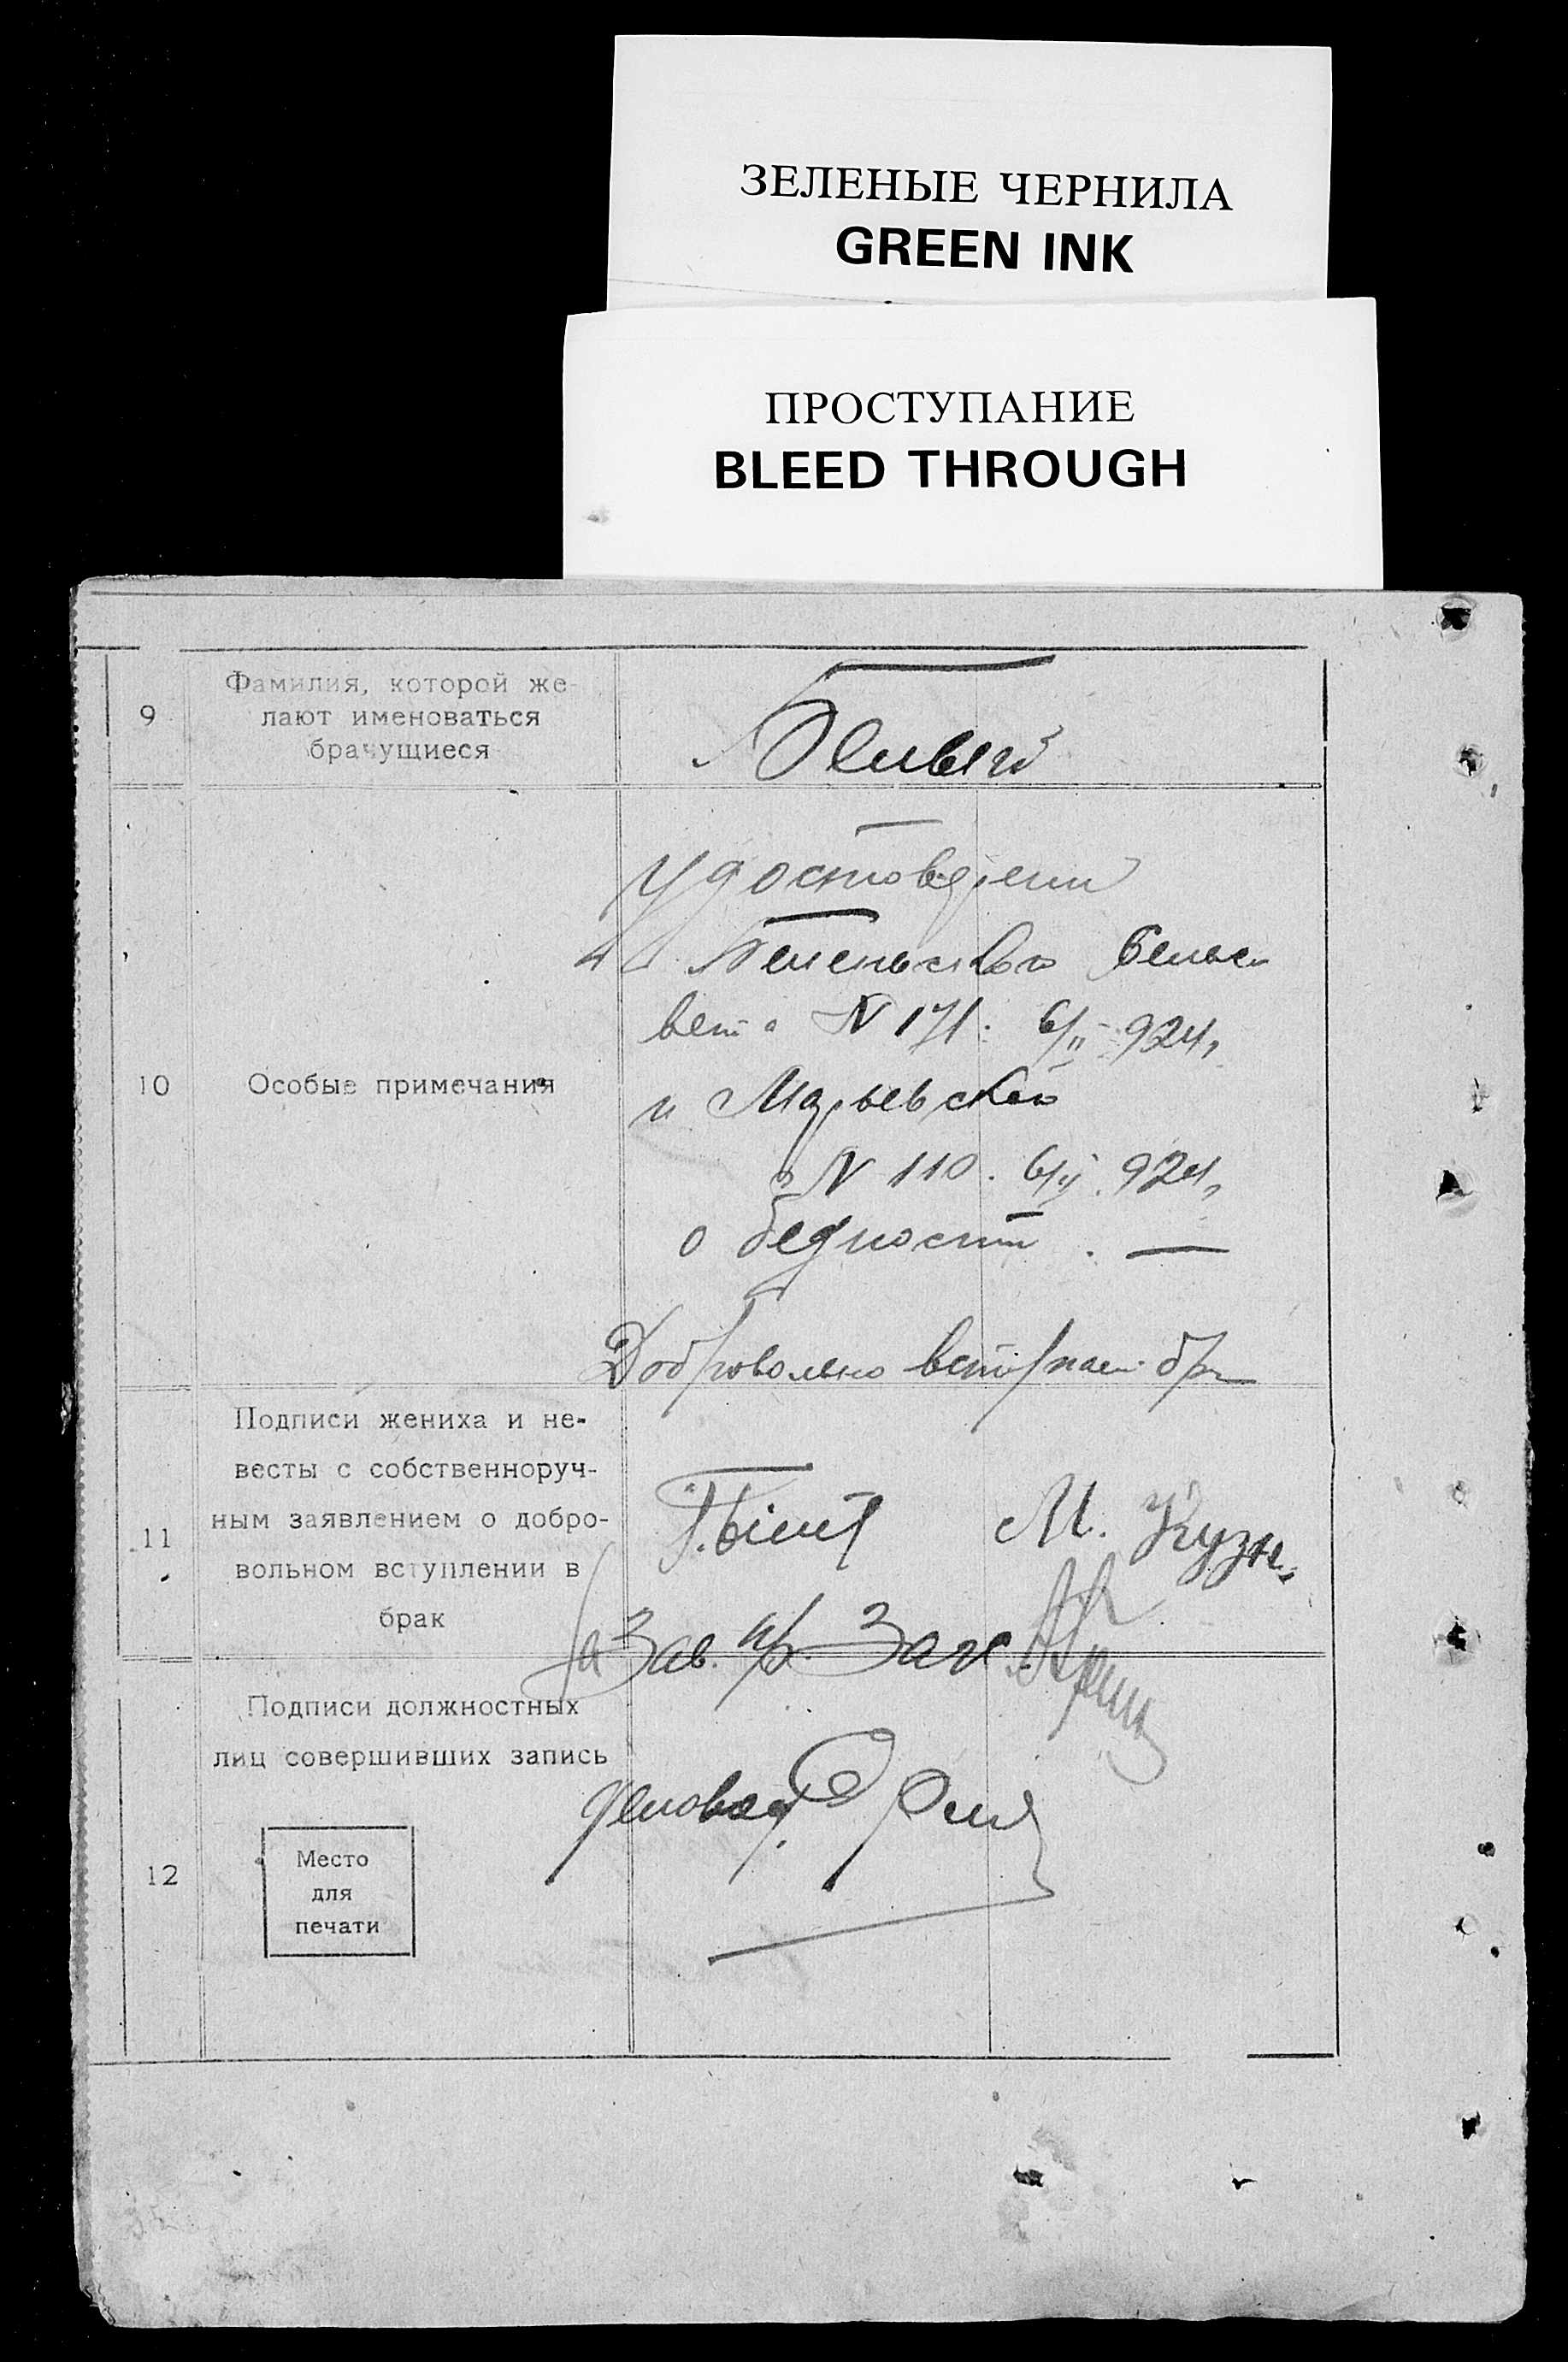 ЗЕЛЕНЫЕ ЧЕРНИЛА
GREEN INK
ПРОСТУПАНИЕ
BLEED THROUGH
9
Фамилия, которой же-
лают именоваться
брачущиеся
10
Особые примечания
Удостоверени
N 171. 6/II - 924,
и Марьевской
N 110. 6/II. 924,
о бедности. —
Добровольно вступаем бр
11
Подписи жениха и не-
весты с собственноруч-
ным заявлением о добро-
вольном вступлении в
брак
М. Кузн.
за Зав. п/о. Загс.
12
Подписи должностных
лиц совершивших запись
Деловод.
Место
для
печати